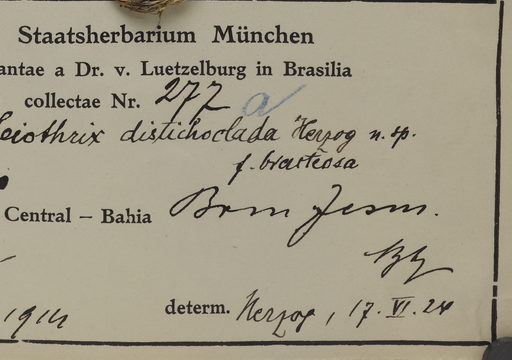 Staatsherbarium München
antae a Dr. v. Luetzelburg in Brasilia
collectae Nr. 277 a
Leiothrix distichoclada Herzog n. sp.
f. bracteosa
Central – Bahia Bom Jesus.
1914
determ. Herzog, 17. VI. 24